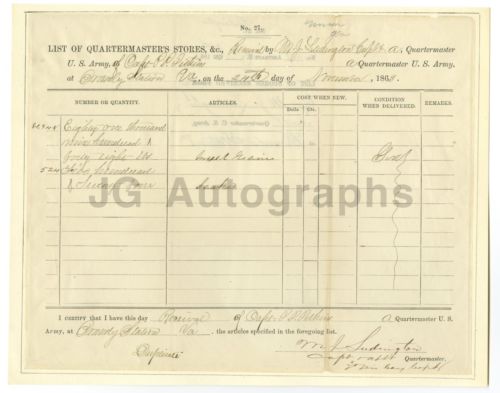 No. 27.
LIST OF QUARTERMASTER'S STORES, &c., Received by M. J. Ludington Capt & A. Quartermaster
U. S. Army, of Capt. P. P. Pitkin A Quartermaster U. S. Army,
at Brandy Station Va., on the day of November, 186
NUMBER OR QUANTITY. ARTICLES. COST WHEN NEW. CONDITION WHEN DELIVERED. REMARKS.
Dolls. Cts.
Eighty one thousand
nine hundred &
forty eight lbs Grain Good
524 Five hundred
& twenty four Sacks
JG Autographs
I CERTIFY that I have this day Received of Capt. P. P. Pitkin A Quartermaster U. S.
Army, at Brandy Station Va., the articles specified in the foregoing list.
Duplicate
M. J. Ludington
Quartermaster.